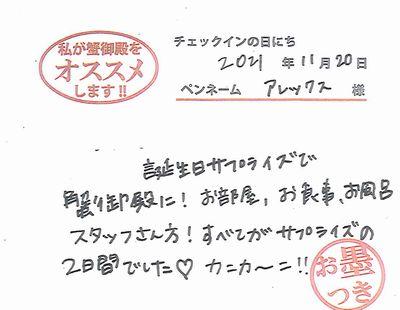 私が蟹御殿を
オススメ
します!!
チェックインの日にち
2021 年 11 月 20 日
ペンネーム アレックス 様
誕生日サプライズで
蟹御殿に! お部屋、お食事、お風呂
スタッフさん方! すべてがサプライズの
2日間でした♡ カニカ〜ン!!
お墨
つき